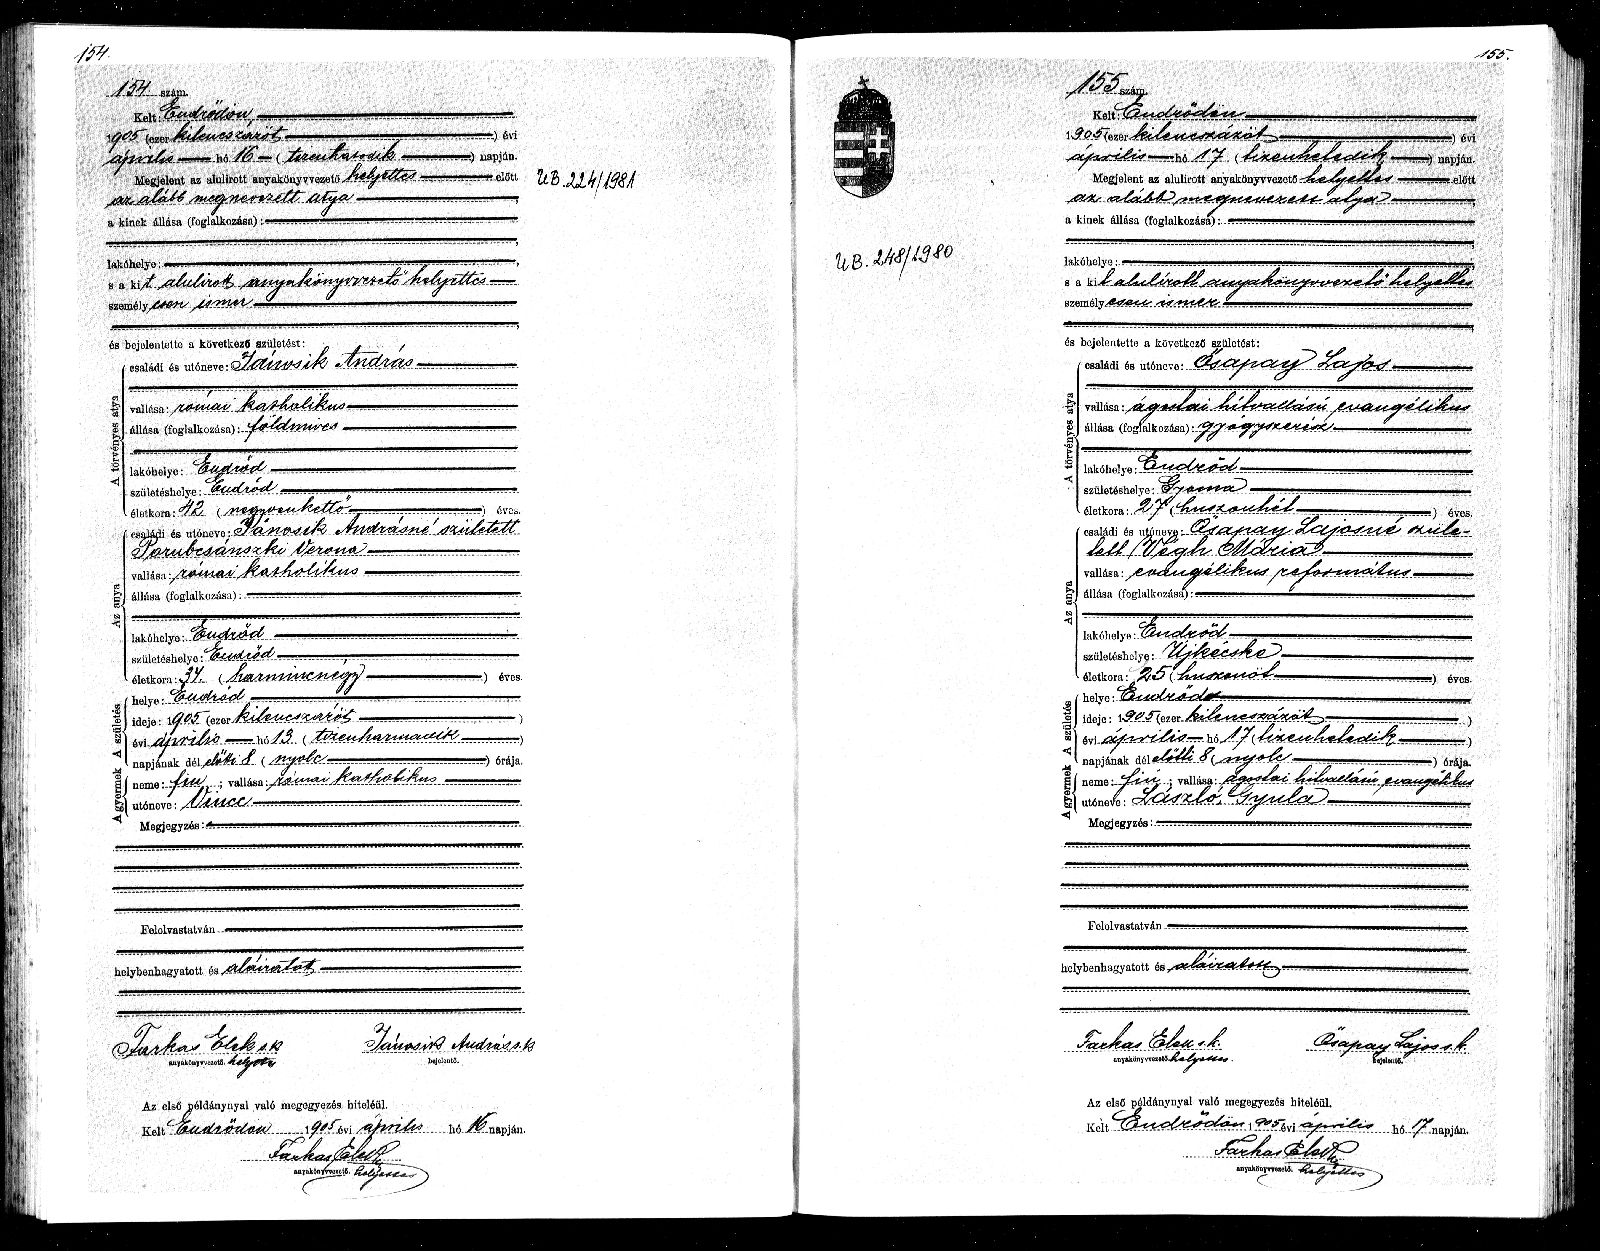 154.
154 szám.
Kelt: Endrődön,
1905 (ezer kilenczszázöt) évi
április hó 16 (tizenhatodik) napján.
Megjelent az alulirott anyakönyvvezető helyettes előtt
az alább megnevezett atya
a kinek állása (foglalkozása):
lakóhelye:
s a kit alulirott anyakönyvvezető helyettes
személyesen ismer
és bejelentette a következő születést:
A törvényes atya
családi és utóneve: Jánosik András
vallása: római katholikus
állása (foglalkozása): földmives
lakóhelye: Endrőd
születéshelye: Endrőd
életkora: 42 (negyvenkettő) éves.
Az anya
családi és utóneve: Jánosik Andrásné született
Parubcsánszki Verona
vallása: római katholikus
állása (foglalkozása):
lakóhelye: Endrőd
születéshelye: Endrőd
életkora: 34. (harmincnégy) éves.
A születés
helye: Endrőd
ideje: 1905 (ezer kilenczszázöt)
évi április hó 13 (tizenharmadik)
napjának délelőtti 8 (nyolc) órája.
A gyermek
neme: fiu; vallása: római katholikus
utóneve: Vince
Megjegyzés:
Felolvastatván
helybenhagyatott és aláiratott
Farkas Elek s.k. Jánosik András s.k.
anyakönyvvezető. helyettes bejelentő.
Az első példánynyal való megegyezés hiteléül.
Kelt Endrődön 1905 évi április hó 16 napján.
Farkas Elek
anyakönyvvezető. helyettes
UB. 224/1981
155.
155 szám.
Kelt: Endrődön
1905 (ezer kilenczszázöt) évi
április hó 17 (tizenhetedik) napján.
Megjelent az alulirott anyakönyvvezető helyettes előtt
az alább megnevezett atya
a kinek állása (foglalkozása):
lakóhelye:
s a kit alulirott anyakönyvvezető helyettes
személyesen ismer
és bejelentette a következő születést:
A törvényes atya
családi és utóneve: Csapay Lajos
vallása: ágostai hitvallású evangélikus
állása (foglalkozása): gyógyszerész
lakóhelye: Endrőd
születéshelye: Gyoma
életkora: 27 (huszonhét) éves.
Az anya
családi és utóneve: Csapay Lajosné szüle-
tett Végh Mária
vallása: evangélikus református
állása (foglalkozása):
lakóhelye: Endrőd
születéshelye: Ujkécske
életkora: 25 (huszonöt) éves.
A születés
helye: Endrőd
ideje: 1905 (ezer kilenczszázöt)
évi április hó 17 (tizenhetedik)
napjának délelőtti 8 (nyolc) órája.
A gyermek
neme: fiu; vallása: ágostai hitvallású evangélikus
utóneve: László, Gyula
Megjegyzés:
Felolvastatván
helybenhagyatott és aláiratott
Farkas Elek s.k. Csapay Lajos s.k.
anyakönyvvezető. helyettes. bejelentő.
Az első példánynyal való megegyezés hiteléül.
Kelt Endrődön 1905 évi április hó 17 napján.
Farkas Elek
anyakönyvvezető. helyettes
UB. 248/1980